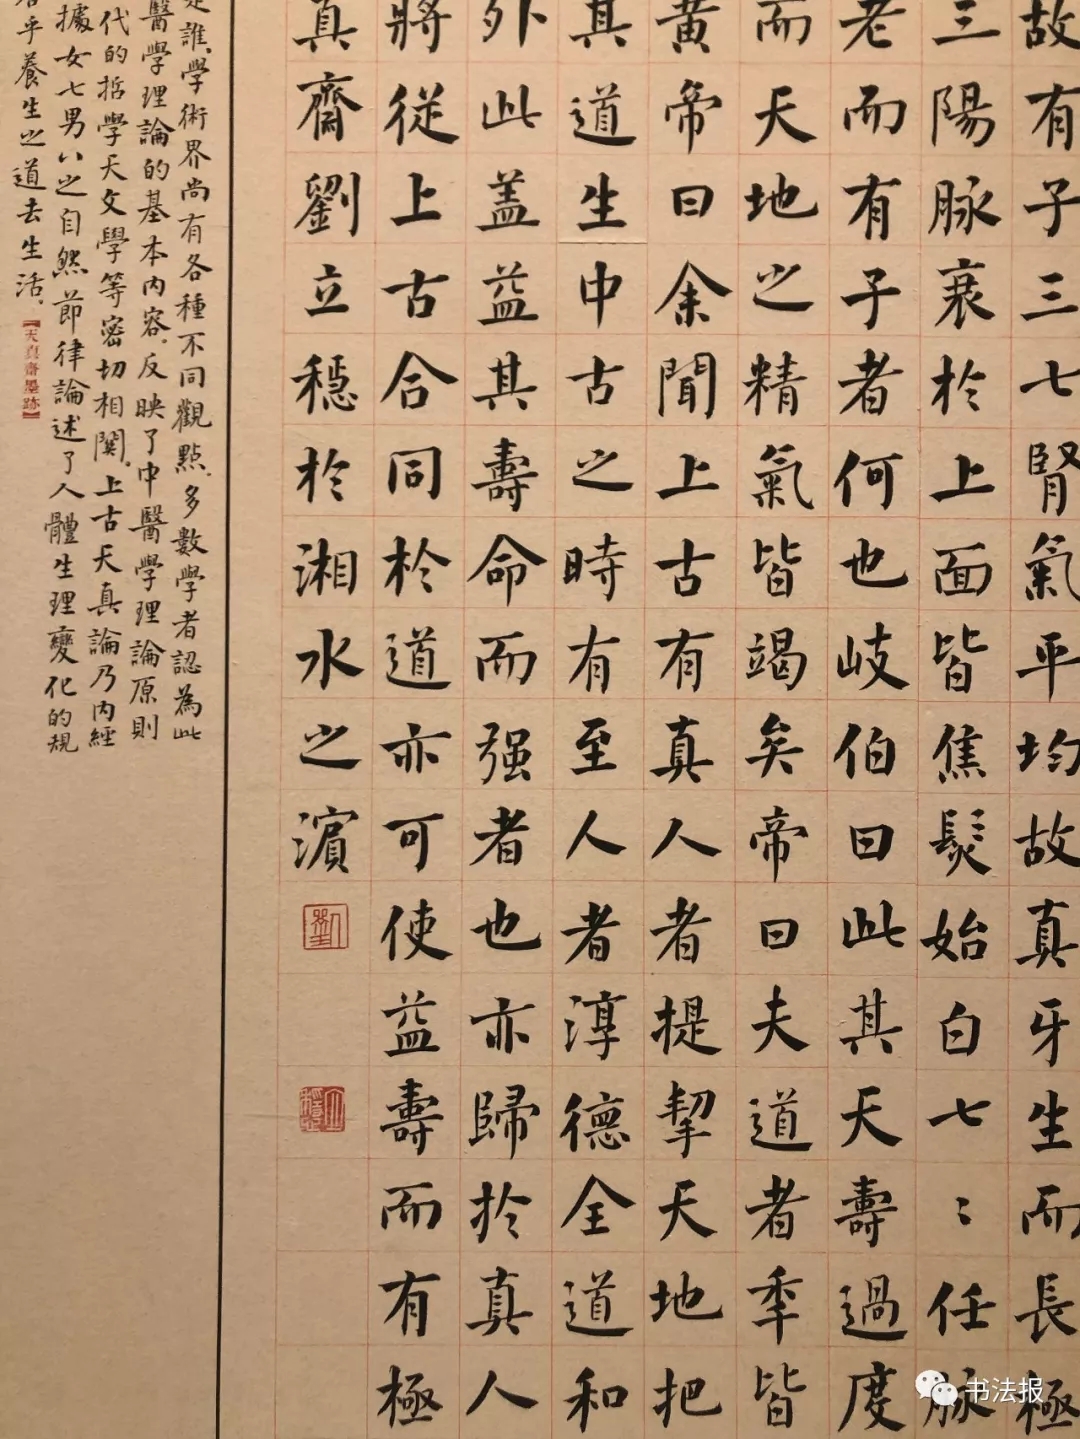 故有子三七腎氣平均故真牙生而長極
三陽脉衰於上面皆焦髮始白七〻任脉
老而有子者何也岐伯曰此其天壽過度
而天地之精氣皆竭矣帝曰夫道者年皆
黃帝曰余聞上古有真人者提挈天地把
其道生中古之時有至人者淳德全道和
外此盖益其壽命而强者也亦歸於真人
將從上古合同於道亦可使益壽而有極
真齋劉立穩於湘水之濱
是誰、學術界尚有各種不同觀點、多數學者認為此
醫學理論的基本内容、反映了中醫學理論原則
代的哲學天文學等密切相關。上古天真論乃内經
據女七男八之自然節律論述了人體生理變化的規
乎養生之道去生活。
【天真齋墨跡】
书法报